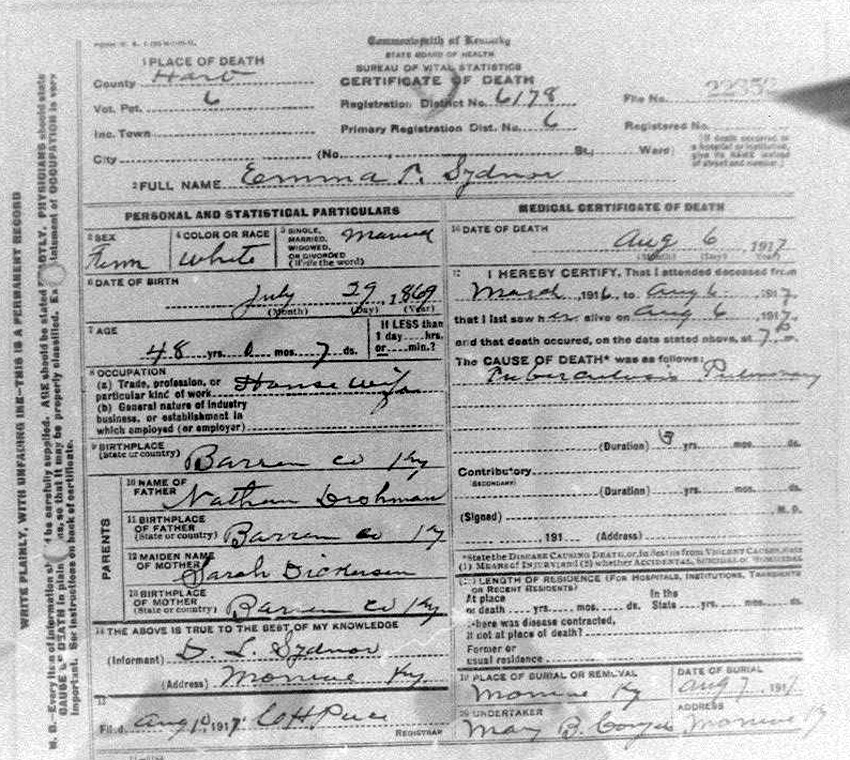 Commonwealth of Kentucky
STATE BOARD OF HEALTH
BUREAU OF VITAL STATISTICS
CERTIFICATE OF DEATH
1 PLACE OF DEATH
County Hart
Vot. Pct. 6
Registration District No. 6178
File No. 22352
Inc. Town
Primary Registration Dist. No. 6
Registered No.
City (No. St.; Ward)
(If death occurred in a hospital or institution, give its NAME instead of street and number.)
2 FULL NAME Emma P. Sydnor
PERSONAL AND STATISTICAL PARTICULARS
3 SEX Fem
4 COLOR OR RACE White
5 SINGLE, MARRIED, WIDOWED, OR DIVORCED (Write the word) Married
6 DATE OF BIRTH
July 29, 1869
(Month) (Day) (Year)
7 AGE
48 yrs. 0 mos. 7 ds.
If LESS than 1 day hrs. or min.?
8 OCCUPATION
(a) Trade, profession, or particular kind of work House wife
(b) General nature of industry business, or establishment in which employed (or employer)
9 BIRTHPLACE
(State or country) Barren co Ky
PARENTS
10 NAME OF FATHER Nathan
11 BIRTHPLACE OF FATHER
(State or country) Barren co Ky
12 MAIDEN NAME OF MOTHER Sarah Dickerson
13 BIRTHPLACE OF MOTHER
(State or country) Barren co Ky
14 THE ABOVE IS TRUE TO THE BEST OF MY KNOWLEDGE
(Informant) D. L. Sydnor
(Address) Monroe Ky.
15
Filed Aug 10 1917 C H
REGISTRAR
MEDICAL CERTIFICATE OF DEATH
16 DATE OF DEATH
Aug 6 1917
(Month) (Day) (Year)
17 I HEREBY CERTIFY, That I attended deceased from
March, 1916, to Aug 6, 1917,
that I last saw her alive on Aug 6, 1917,
and that death occured, on the date stated above, at 7 p m.
The CAUSE OF DEATH* was as follows:
Tuberculosis Pulmonary
(Duration) 3 yrs. mos. ds.
Contributory
(SECONDARY)
(Duration) yrs. mos. ds.
(Signed) M. D.
191 (Address)
*State the DISEASE CAUSING DEATH, or, in deaths from VIOLENT CAUSES, state
(1) MEANS OF INJURY; AND (2) whether ACCIDENTAL, SUICIDAL or HOMICIDAL
LENGTH OF RESIDENCE (FOR HOSPITALS, INSTITUTIONS, TRANSIENTS OR RECENT RESIDENTS)
At place of death yrs. mos. ds. In the State yrs. mos. ds.
Where was disease contracted,
if not at place of death?
Former or
usual residence
19 PLACE OF BURIAL OR REMOVAL
Monroe Ky
DATE OF BURIAL
Aug 7, 1917
20 UNDERTAKER
B.
ADDRESS
Monroe Ky
WRITE PLAINLY, WITH UNFADING INK—THIS IS A PERMANENT RECORD
N. B.—Every item of information should be carefully supplied. AGE should be stated EXACTLY. PHYSICIANS should state
CAUSE OF DEATH in plain terms, so that it may be properly classified. Exact statement of OCCUPATION is very
important. See instructions on back of certificate.